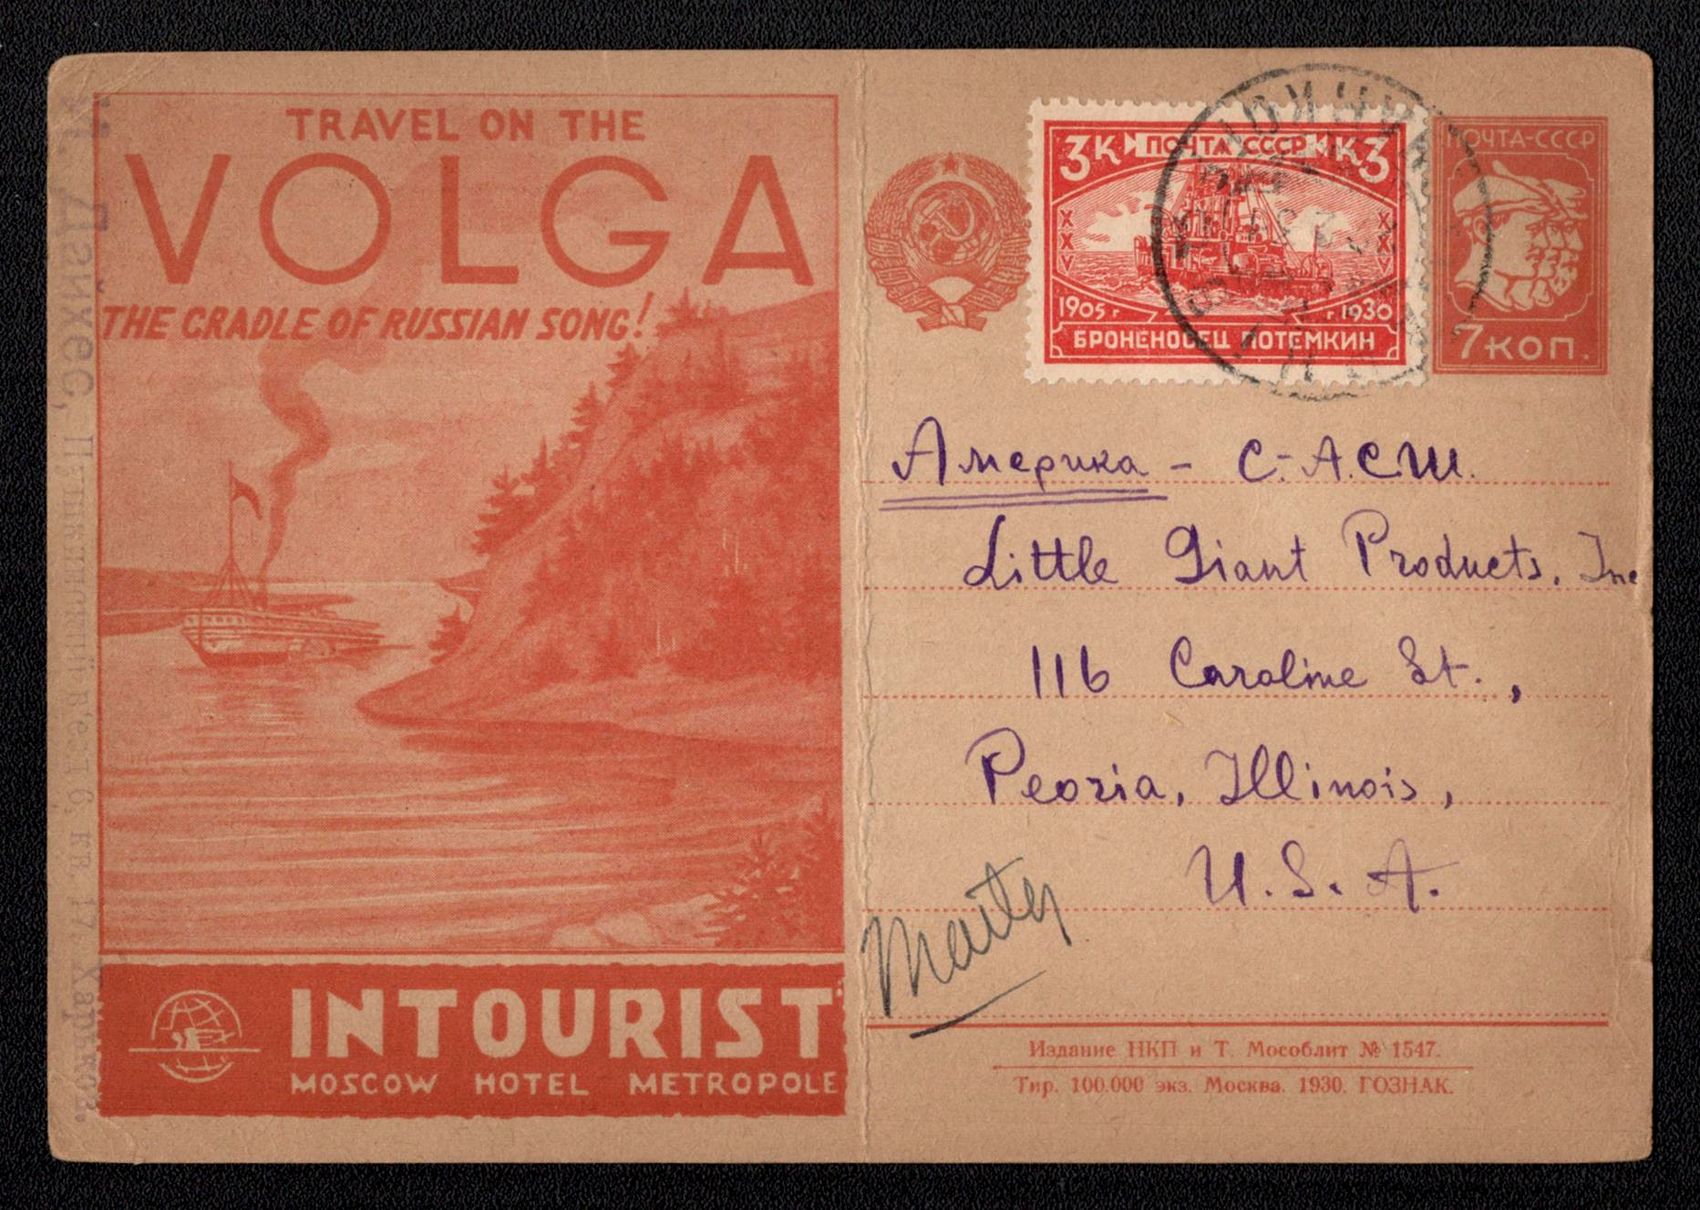 TRAVEL ON THE
VOLGA
THE CRADLE OF RUSSIAN SONG!
INTOURIST
MOSCOW HOTEL METROPOLE
Дайхес, Пушкинский в'езд 6, кв. 17. Харьков.
3К ПОЧТА СССР К3
XXV XXV
1905 г г 1930
БРОНЕНОСЕЦ ПОТЕМКИН
ПОЧТА-СССР
7 КОП.
Америка - С.А.С.Ш.
Little Giant Products, Inc
116 Caroline St.,
Peoria, Illinois,
U.S.A.
Издание НКП и Т. Мособлит № 1547.
Тир. 100.000 экз. Москва. 1930. ГОЗНАК.